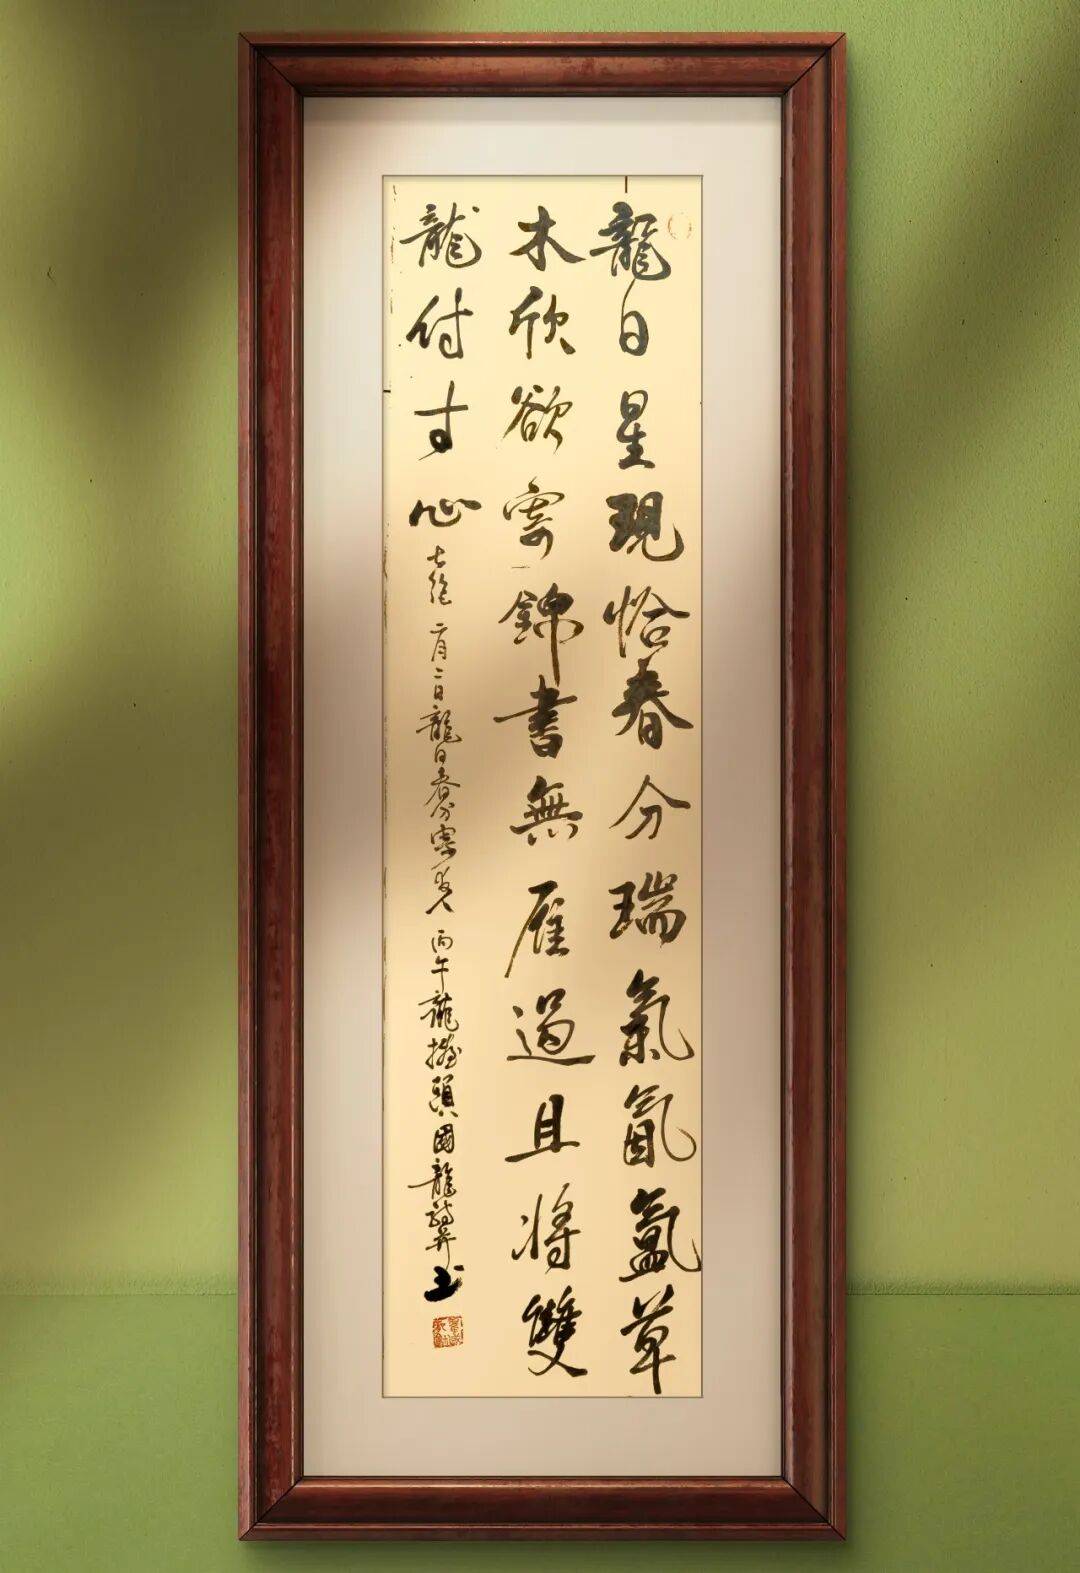 龍日星現恰春分瑞氣氤氳草
木欣欲寄錦書無雁過且將雙
龍付寸心
七絕 二月二日龍日春分寄友人 丙午龍擡頭國龍詩并书